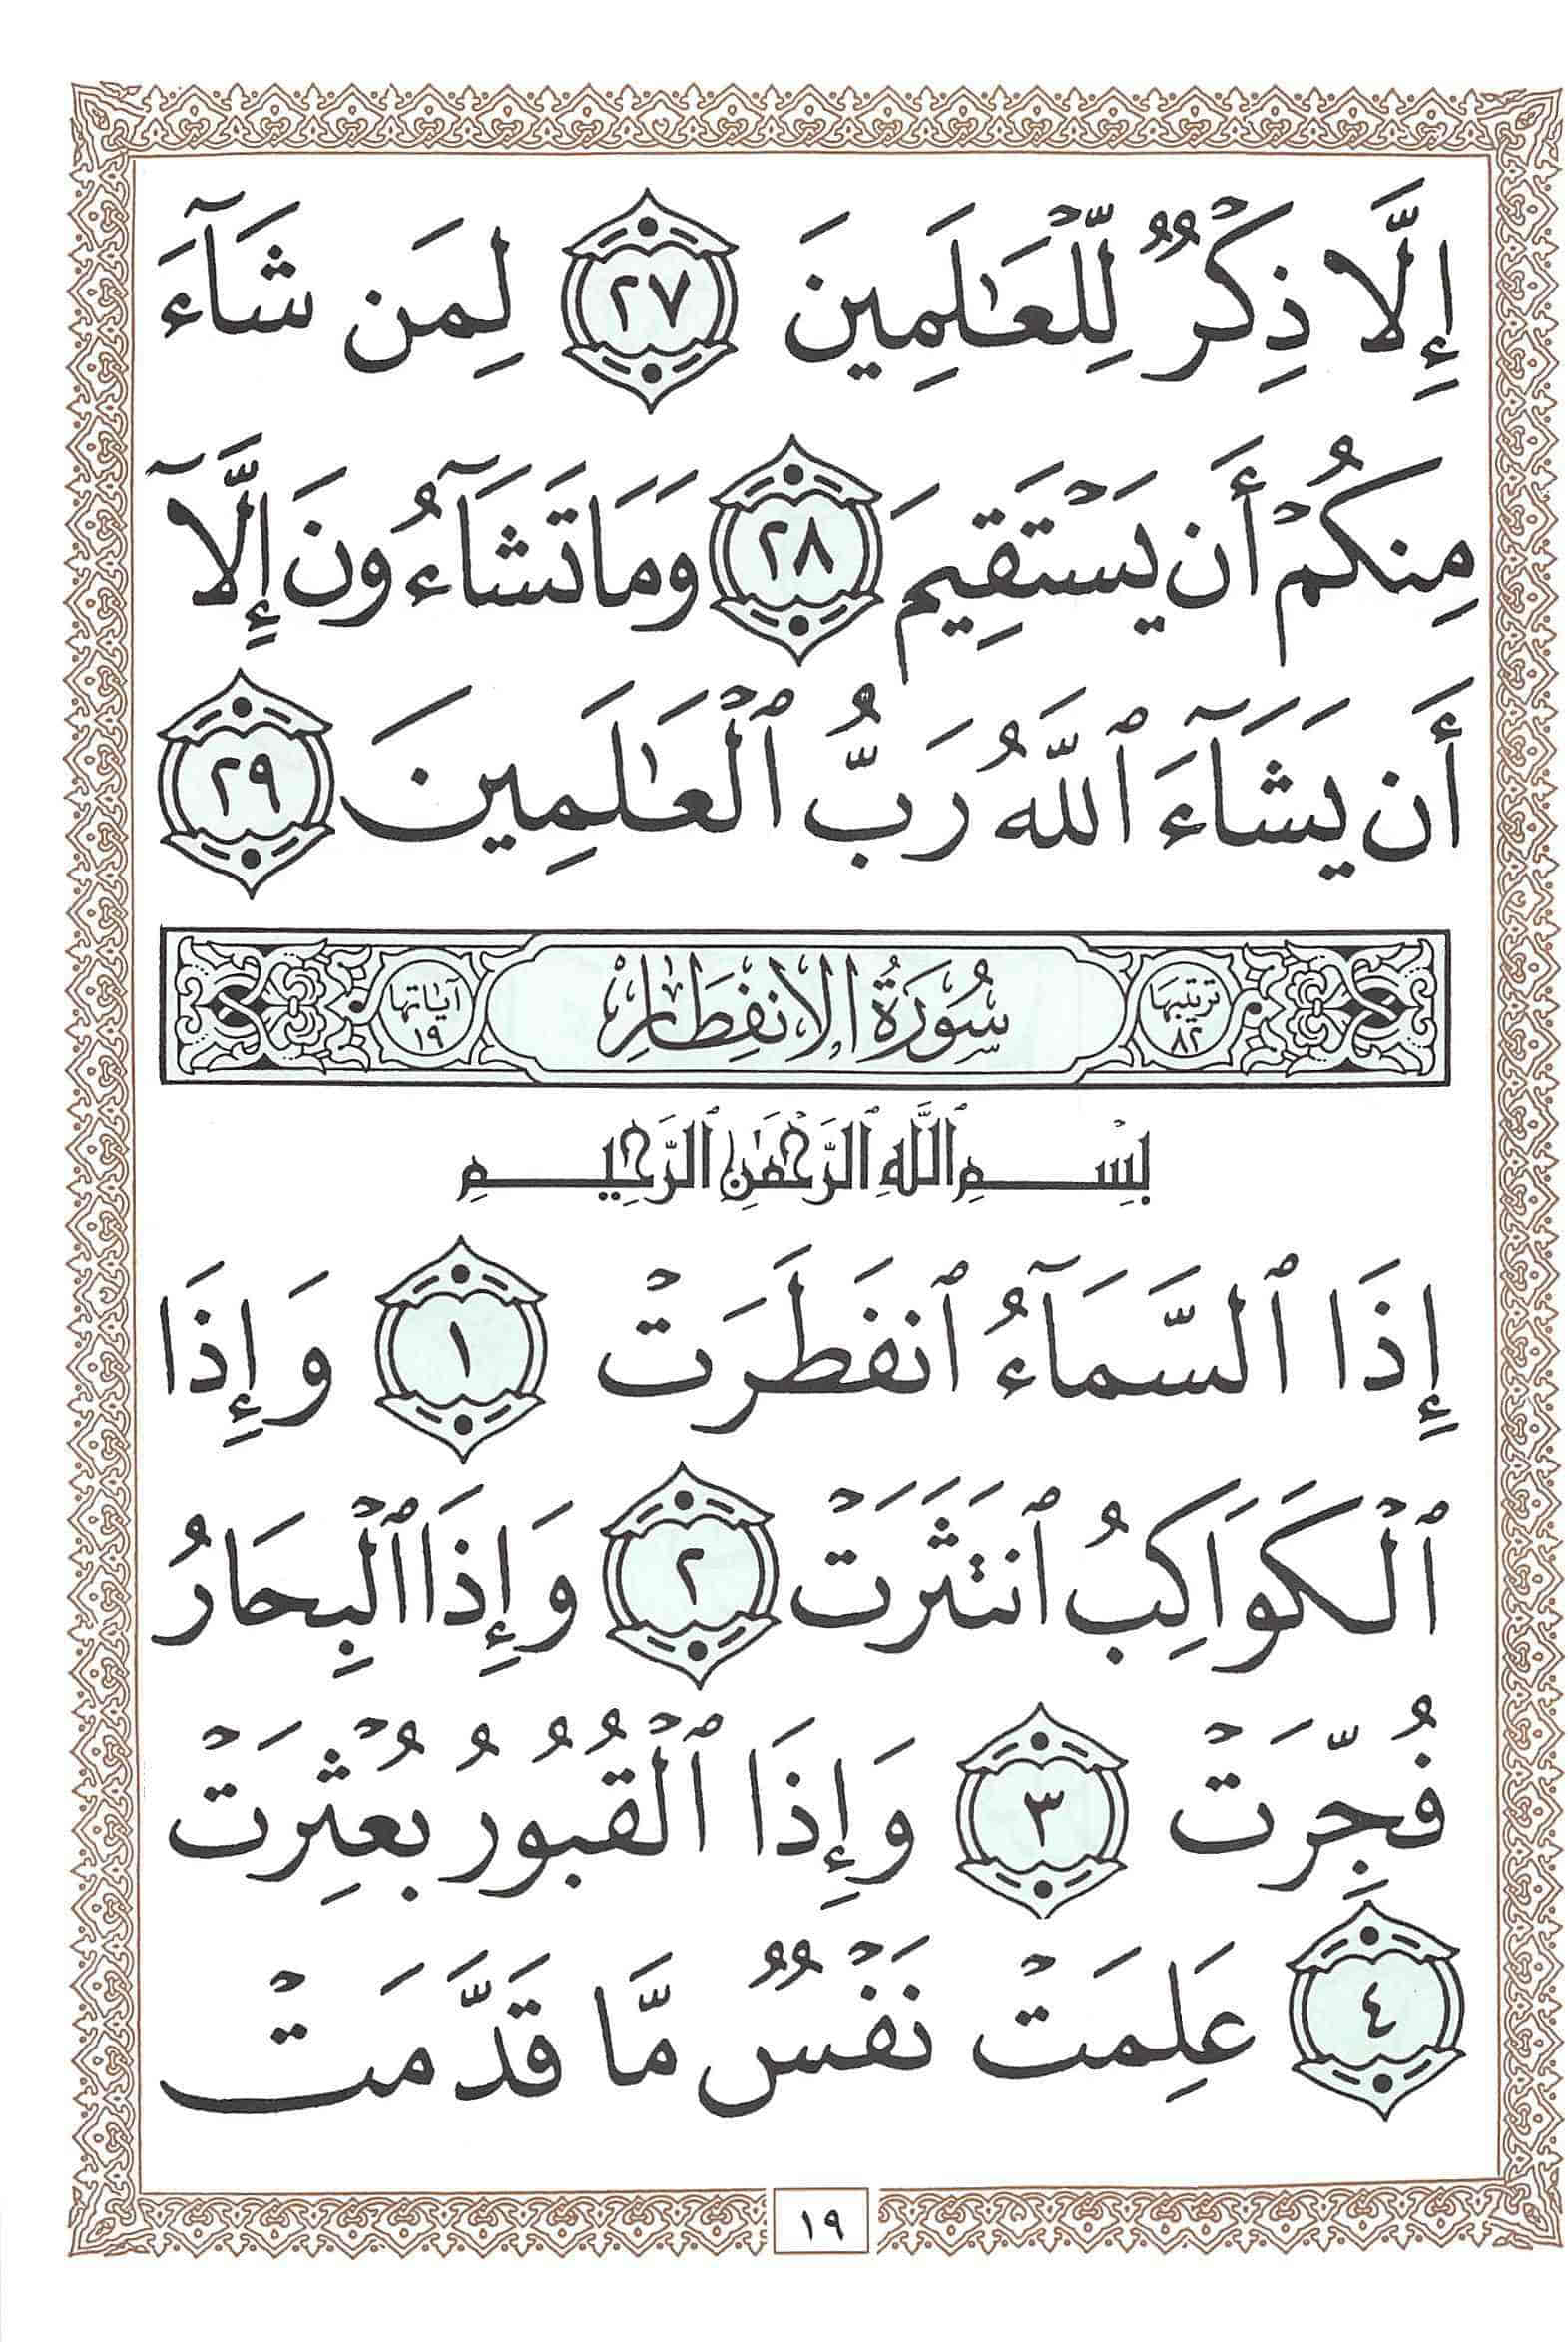 إِلَّا ذِكْرٌ لِّلْعَٰلَمِينَ ٢٧ لِمَن شَآءَ
مِنكُمْ أَن يَسْتَقِيمَ ٢٨ وَمَا تَشَآءُونَ إِلَّآ
أَن يَشَآءَ ٱللَّهُ رَبُّ ٱلْعَٰلَمِينَ ٢٩
ترتيبها ٨٢ سُورَةُ الِانفِطَارِ آيَاتها ١٩
بِسْمِ ٱللَّهِ ٱلرَّحْمَٰنِ ٱلرَّحِيمِ
إِذَا ٱلسَّمَآءُ ٱنفَطَرَتْ ١ وَإِذَا
ٱلْكَوَاكِبُ ٱنتَثَرَتْ ٢ وَإِذَا ٱلْبِحَارُ
فُجِّرَتْ ٣ وَإِذَا ٱلْقُبُورُ بُعْثِرَتْ
٤ عَلِمَتْ نَفْسٌ مَّا قَدَّمَتْ
١٩